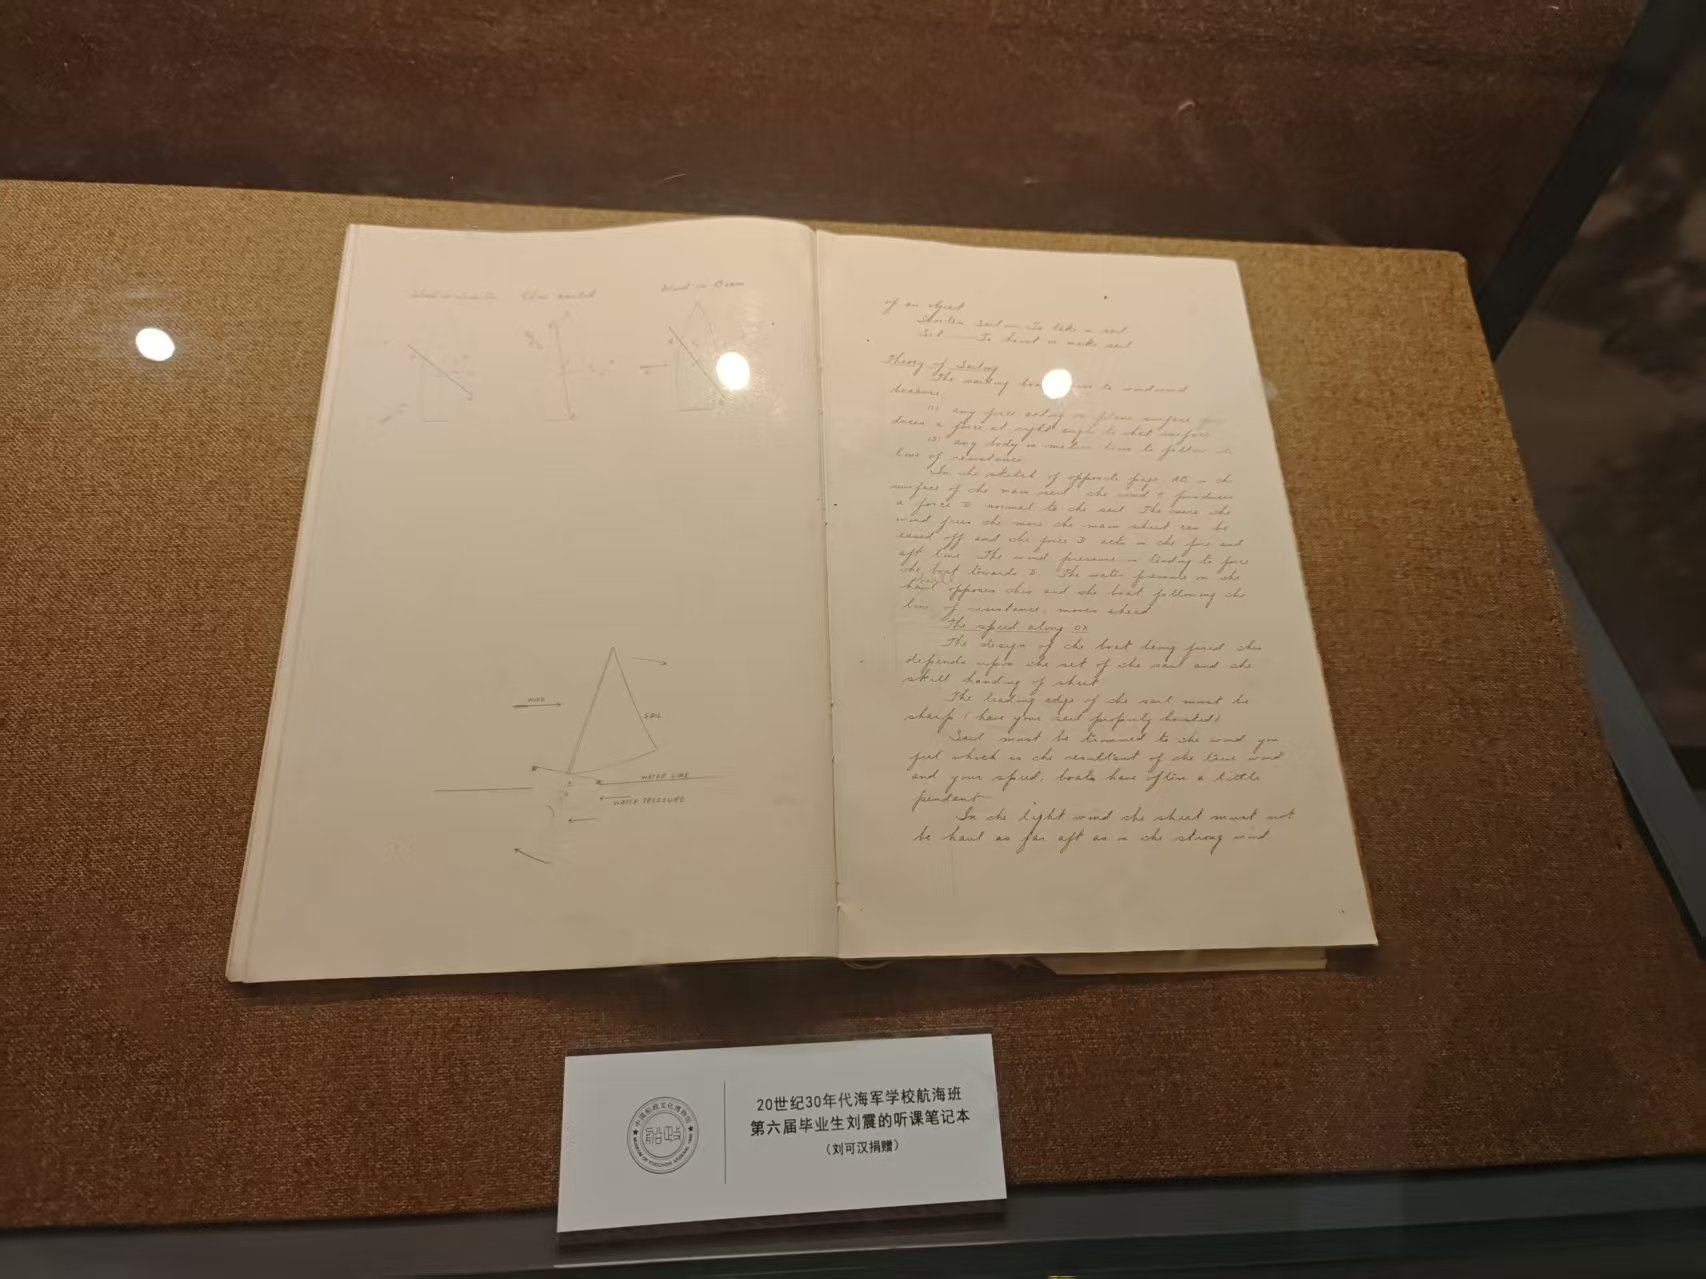 Wind in Beam
WIND
SAIL
WATER LINE
WATER PRESSURE
of an object
Shorten Sail — To take in sail
Set — To hoist or make sail
Theory of Sailing
The sailing boat to windward
because
(1) any force acting on plane surface pro
duces a force at right angle to that surface
(2) any body in motion tends to follow the
line of resistance
In the sketch of opposite page AC is the
surface of the main sail the wind produces
a force D normal to the sail The more the
wind frees the more the main sheet can be
eased off and the force D acts in the fore and
aft line The wind pressure is tending to force
the boat towards D. The water pressure on the
opposes this and the boat following the
line of resistance, moves ahead
The speed along OX
The design of the boat being fixed this
depends upon the set of the sail and the
skill handing of sheet
The leading edge of the sail must be
sharp (have your sail properly hoisted)
Sail must be trimmed to the wind you
feel which is the resultant of the true wind
and your speed, boats have often a little
pendant
In the light wind the sheet must not
be haul as far aft as in the strong wind
中国船政文化博物馆
船政
MUSEUM OF FOOCHOW ARSENAL
20世纪30年代海军学校航海班
第六届毕业生刘震的听课笔记本
（刘可汉捐赠）